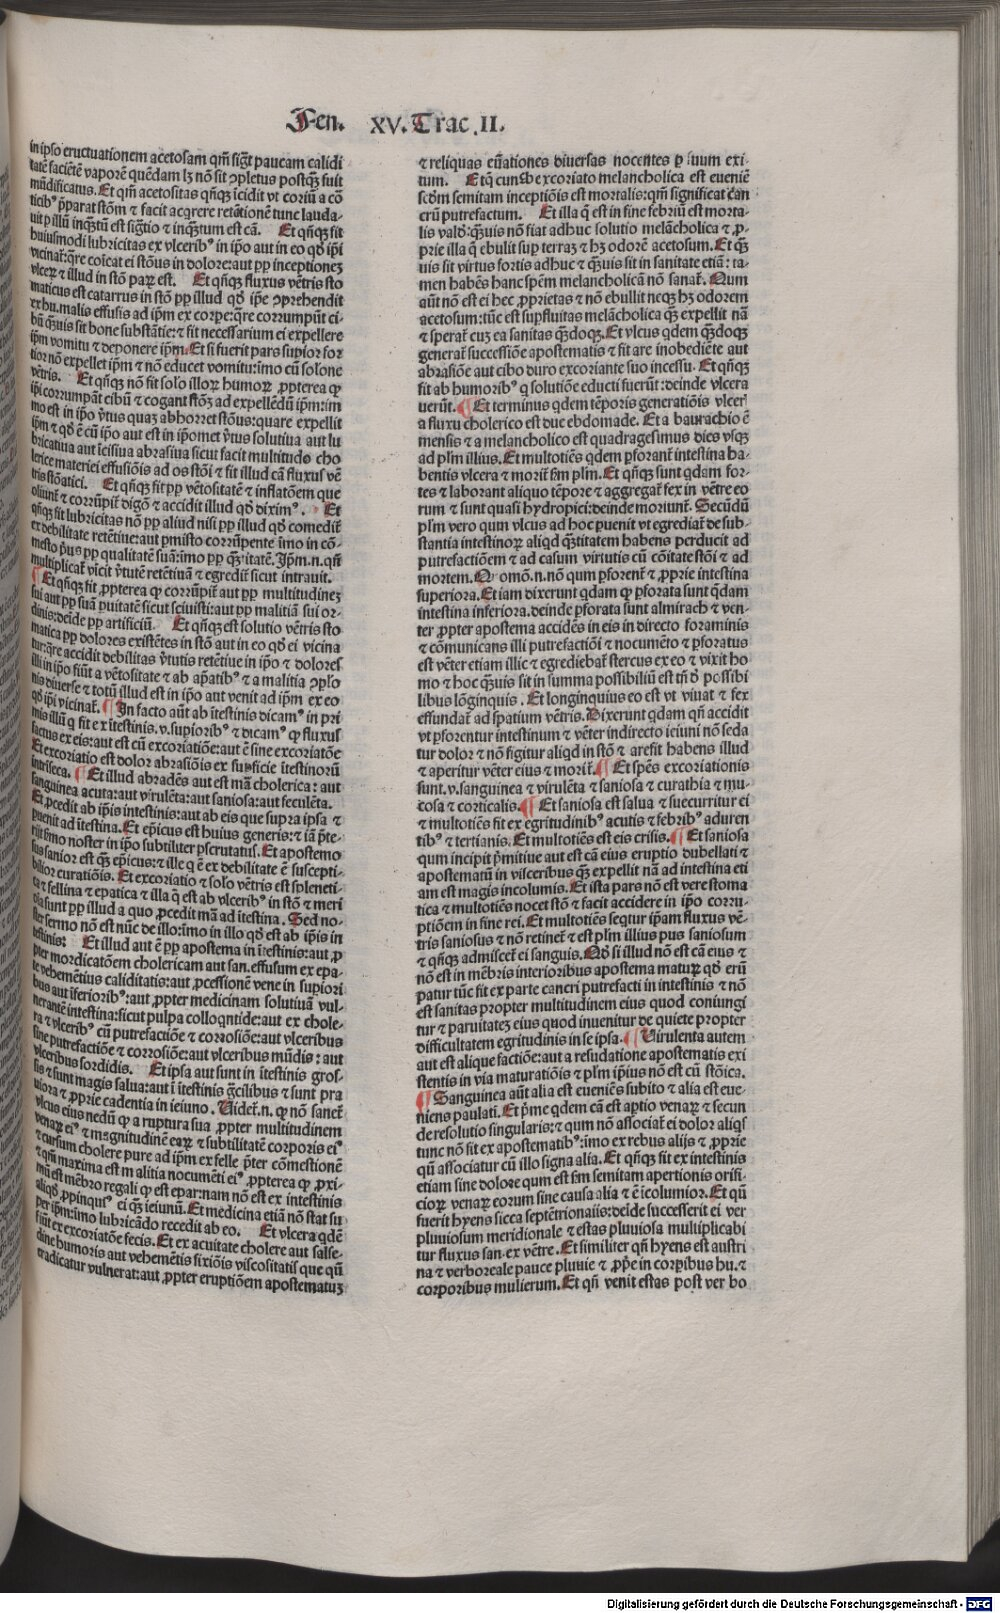 Fen. XV. Trac .II.
in ipso eructuationem acetosam qm̃ sig̃t paucam calidi
tatẽ faciẽtẽ vaporẽ quẽdam lꝫ nõ sit ꝯpletus postꝙ̃ fuit
mũdificatus. Et qm̃ acetositas qñqꝫ ĩcidit vt coriũ a cõ
huiusmodi lubricitas ex vlcerib⁹ in ip̃o aut in eo qd̃ ip̃i
vlceꝝ ⁊ illud in stõ paꝝ est. Et qñqꝫ fluxus vẽtris sto
maticus est catarrus in stõ pp̃ illud qd̃ ip̃e ꝯprehendit
ex hu. malis effusis ad ip̃m ex corpe: q̃re corrumpũt ci-
bũ q̃uis sit bone substãtie: ⁊ fit necessarium ei expellere
ip̃m vomitu ⁊ deponere ip̃m. Et si fuerit pars supior for
tior nõ expellet ip̃m ⁊ nõ educet vomitu: imo cũ solone
vẽtris. Et qñqꝫ nõ fit solo illoꝝ humoꝝ ꝓpterea ꝙ
ip̃i corrumpãt cibũ ⁊ cogant stõꝫ ad expellẽdũ ip̃m: im
mo est in ip̃o ṽtus quaꝫ abhorret stõus: quare expellit
ip̃m ⁊ qd̃ ẽ cũ ip̃o aut est in ip̃omet ṽtus solutiua aut lu
bricatiua aut ĩcisiua abrasiua sicut facit multitudo cho
lerice materiei effusiõis ad os stõi ⁊ fit illud cã fluxus vẽ
tris stõatici. Et qñqꝫ fit pp̃ vẽtositatẽ ⁊ inflatõem que
oliunt̃ ⁊ corrũpit̃ digõ ⁊ accidit illud qd̃ dixim⁹. Et
qñqꝫ fit lubricitas nõ pp̃ aliud nisi pp̃ illud qd̃ comedit̃
ex debilitate retẽtiue: aut pmisto corrũpente imo in cõ-
mesto p̃us pp̃ qualitatẽ suã: imo pp̃ q̃ꝫtitatẽ. Ip̃m.n.qñ
multiplicat̃ vicit ṽtutẽ retẽtiuã ⁊ egredit̃ sicut intrauit.
¶ Et qñqꝫ fit ꝓpterea ꝙ corrũpit̃ aut pp̃ multitudineꝫ
sui aut pp̃ suã puitatẽ sicut sciuisti: aut pp̃ malitiã sui or-
dinis: deĩde pp̃ artificiũ. Et qñqꝫ est solutio vẽtris sto
matica pp̃ dolores existẽtes in stõ aut in eo qd̃ ei vicina
tur: q̃re accidit debilitas ṽtutis retẽtiue in ip̃o ⁊ dolores
illi in ip̃o fiũt a vẽtositate ⁊ ab ap̃atib⁹ ⁊ a malitia ꝯplõ
nis diuerse ⁊ totũ illud est in ip̃o aut venit ad ip̃m ex eo
qd̃ ip̃i vicinat̃. ¶ In facto aũt ab ĩtestinis dicam⁹ in pri
mis illũ q̃ fit ex ĩtestinis.v.supiorib⁹ ⁊ dicam⁹ ꝙ fluxus
factus ex eis: aut est cũ excoriatiõe: aut ẽ sine excoriatõe
Et excoriatio est dolor abrasiõis ex supficie ĩtestinorũ
intriseca. ¶ Et illud abradẽs aut est mã cholerica: aut
sanguinea acuta: aut virulẽta: aut saniosa: aut feculẽta.
Et ꝓcedit ab ip̃is intestinis: aut ab eis que supra ipsa ⁊
puenit ad ĩtestina. Et epicus est huius generis: ⁊ iã p̃te-
rijt smo noster in ip̃o subtiliter pscrutatus. Et apostemo
sus sanior est q̃ꝫ epicus: ⁊ ille q̃ ẽ ex debilitate ẽ suscepti-
bilior curatiõis. Et excoriatio ⁊ solo vẽtris est spleneti-
ca ⁊ fellina ⁊ epatica ⁊ illa q̃ est ab vlcerib⁹ in stõ ⁊ meri
oia sunt pp̃ illud a quo ꝓcedit mã ad ĩtestina. Sed no-
ster sermo nõ est nũc de illo: imo in illo qd̃ est ab ip̃is in
testinis: Et illud aut ẽ pp̃ apostema in ĩtestinis: aut ꝓ
pter mordicatõem cholericam aut san. effusum ex epa-
te vehemẽtius caliditatis: aut ꝓcessionẽ vene in supiori
bus aut ĩferiorib⁹: aut ꝓpter medicinam solutiuã vul-
nerantẽ intestina: sicut pulpa colloq̃ntide: aut ex chole-
ra ⁊ vlcerib⁹ cũ putrefactiõe ⁊ corrosiõe: aut vlceribus
sine putrefactiõe ⁊ corrosiõe: aut vlceribus mũdis: aut
vlceribus sordidis. Et ipsa aut sunt in ĩtestinis gros-
sis ⁊ sunt magis salua: aut ĩ ĩtestinis g̃cilibus ⁊ sunt pra
uiora ⁊ ꝓprie cadentia in ieiuno. Uidet̃.n. ꝙ nõ sanet̃
vlcus eius nedũ ꝙ a ruptura sua ꝓpter multitudinem
venaꝝ ei⁹ ⁊ magnitudinẽ eaꝝ ⁊ subtilitatẽ corporis ei⁹
⁊ cursum cholere pure ad ip̃m ex felle p̃ter cõmestionẽ
⁊ qm̃ maxima est malitia nocumẽti ei⁹ ꝓpterea ꝙ ꝓxi-
mũ est mẽbro regali ꝙ est epar: nam nõ est ex intestinis
aliqd̃ ꝓpinqui⁹ ei q̃ꝫ ieiunũ. Et medicina etiã nõ stat su
per ip̃m: imo lubricãdo recedit ab eo. Et vlcera qdẽ
fiũt ex excoriatõe fecis. Et ex acuitate cholere aut salse-
dine humoris aut vehemẽtis fixiõis viscositatis que qũ
eradicatur vulnerat: aut ꝓpter eruptiõem apostematuꝫ
⁊ reliquas eũationes diuersas nocentes ꝑ suum exi-
tum. Etqꝫ cunctẽ excoriato melancholica est eueniẽ
scdm̃ semitam inceptiõis est mortalis: qm̃ significat can
crũ putrefactum. Et illa q̃ est in fine febriũ est morta-
lis valđ: q̃uis nõ fiat adhuc solutio melãcholica ⁊ ꝓ-
prie illa q̃ ebulit sup terraꝫ ⁊ hꝫ odorẽ acetosum. Et q̃ꝫ
uis sit virtus fortis adhuc ⁊ q̃uis sit in sanitate etiã: ta-
men habẽs hanc spẽm melancholicã nõ sanat̃. Num
aũt nõ est ei hec ꝓprietas ⁊ nõ ebullit neqꝫ hꝫ odorem
acetosum: tũc est supfluitas melãcholica q̃ꝫ expellit nã
⁊ sperat̃ cuꝫ ea sanitas q̃ꝫdoqꝫ. Et vlcus qdem q̃ꝫdoqꝫ
generat̃ successiõe apostematis ⁊ fit are inobediẽte aut
abrasiõe aut cibo duro excoriante suo incessu. Et qñqꝫ
fit ab humorib⁹ q̃ solutiõe educti fuerũt: deinde vlcera
uerũt. ¶ Et terminus qdem tẽporis generatiõis vlcer̃
a fluxu cholerico est due ebdomade. Et a baurachio ẽ
mensis ⁊ a melancholico est quadragesimus dies vsqꝫ
ad plm̃ illius. Et multotiẽs qdem pforant̃ intestina ha-
bentis vlcera ⁊ morit̃ sm̃ plm̃. Et qñqꝫ sunt qdam for-
tes ⁊ laborant aliquo tẽpore ⁊ aggregat̃ fex in vẽtre eo
rum ⁊ sunt quasi hydropici: deinde moriunt̃. Secũdũ
plm̃ vero qum vlcus ad hoc puenit vt egrediat̃ de sub-
stantia intestinoꝝ aliqd q̃ꝫtitatem habens perducit ad
putrefactiõem ⁊ ad casum virtutis cũ cõitate stõi ⁊ ad
mortem. Nõ omõ.n.nõ qum pforent̃ ⁊ ꝓprie intestina
superiora. Et iam dixerunt qdam ꝙ pforata sunt q̃dam
intestina inferiora. deinde pforata sunt almirach ⁊ ven-
ter ꝓpter apostema accidẽs in eis in directo foraminis
⁊ cõmunicans illi putrefactiõi ⁊ nocumẽto ⁊ pforatus
est vẽter etiam illic ⁊ egrediebat̃ stercus ex eo ⁊ vixit ho
mo ⁊ hoc q̃uis sit in summa possibiliũ est tñ đ possibi
libus lõginquis. Et longinquius eo est vt viuat ⁊ fex
effundat̃ ad spatium vẽtris. Dixerunt qdam qñ accidit
vt pforentur intestinum ⁊ vẽter indirecto ieiuni nõ seda
tur dolor ⁊ nõ figitur aliqd in stõ ⁊ arefit habens illud
⁊ aperitur vẽter eius ⁊ morit̃. ¶ Et spẽs excoriationis
sunt.v. sanguinea ⁊ virulẽta ⁊ saniosa ⁊ curathia ⁊ mu-
cosa ⁊ corticalis. ¶ Et saniosa est salua ⁊ succurritur ei
⁊ multotiẽs fit ex egritudinib⁹ acutis ⁊ febrib⁹ aduren
tib⁹ ⁊ tertianis. Et multotiẽs est eis crisis. ¶ Et saniosa
qum incipit p̃mitiue aut est cã eius eruptio dubellati ⁊
apostematũ in visceribus q̃ꝫ expellit nã ad intestina eti
am est magis incolumis. Et ista pars nõ est vere stoma
tica ⁊ multotiẽs nocet stõ ⁊ facit accidere in ip̃o corru-
ptiõem in fine rei. Et multotiẽs seqtur ip̃am fluxus vẽ-
tris saniosus ⁊ nõ retinet̃ ⁊ est plm̃ illius pus saniosum
⁊ qñqꝫ admiscet̃ ei sanguis. Qđ si illud nõ est cã eius ⁊
nõ est in mẽbris interioribus apostema maturꝫ qđ erũ
patur tũc fit ex parte cancri putrefacti in intestinis ⁊ nõ
est sanitas propter multitudinem eius quod coniungi
tur ⁊ paruitateꝫ eius quod inuenitur de quiete propter
difficultatem egritudinis in se ipsa. ¶ Uirulenta autem
aut est alique factiõe: aut a resudatione apostematis exi
stentis in via maturatiõis ⁊ plm̃ ip̃ius nõ est cũ stõica.
¶ Sanguinea aũt alia est eueniẽs subito ⁊ alia est eue-
niens paulati. Et p̃me qdem cã est aptio venaꝝ ⁊ secun
de resolutio singularis: ⁊ qum nõ associat̃ ei dolor aliqs
tunc nõ sit ex apostematib⁹: imo ex rebus alijs ⁊ ꝓprie
qũ associatur cũ illo signa alia. Et qñqꝫ fit ex intestinis
etiam sine dolore qum est sm̃ semitam apertionis orifi-
cioꝝ venaꝝ eorum sine causa alia ⁊ ẽ ĩcolumior. Et qũ
fuerit hyens sicca septẽtrionalis: deĩde successerit ei ver
pluuiosum meridionale ⁊ estas pluuiosa multiplicabi
tur fluxus san. ex vẽtre. Et similiter qñ hyens est austri
na ⁊ ver boreale pauce pluuie ⁊ ꝓp̃e in corpibus hu. ⁊
corporibus mulierum. Et qñ venit estas post ver bo
Digitalisierung gefördert durch die Deutsche Forschungsgemeinschaft - DFG